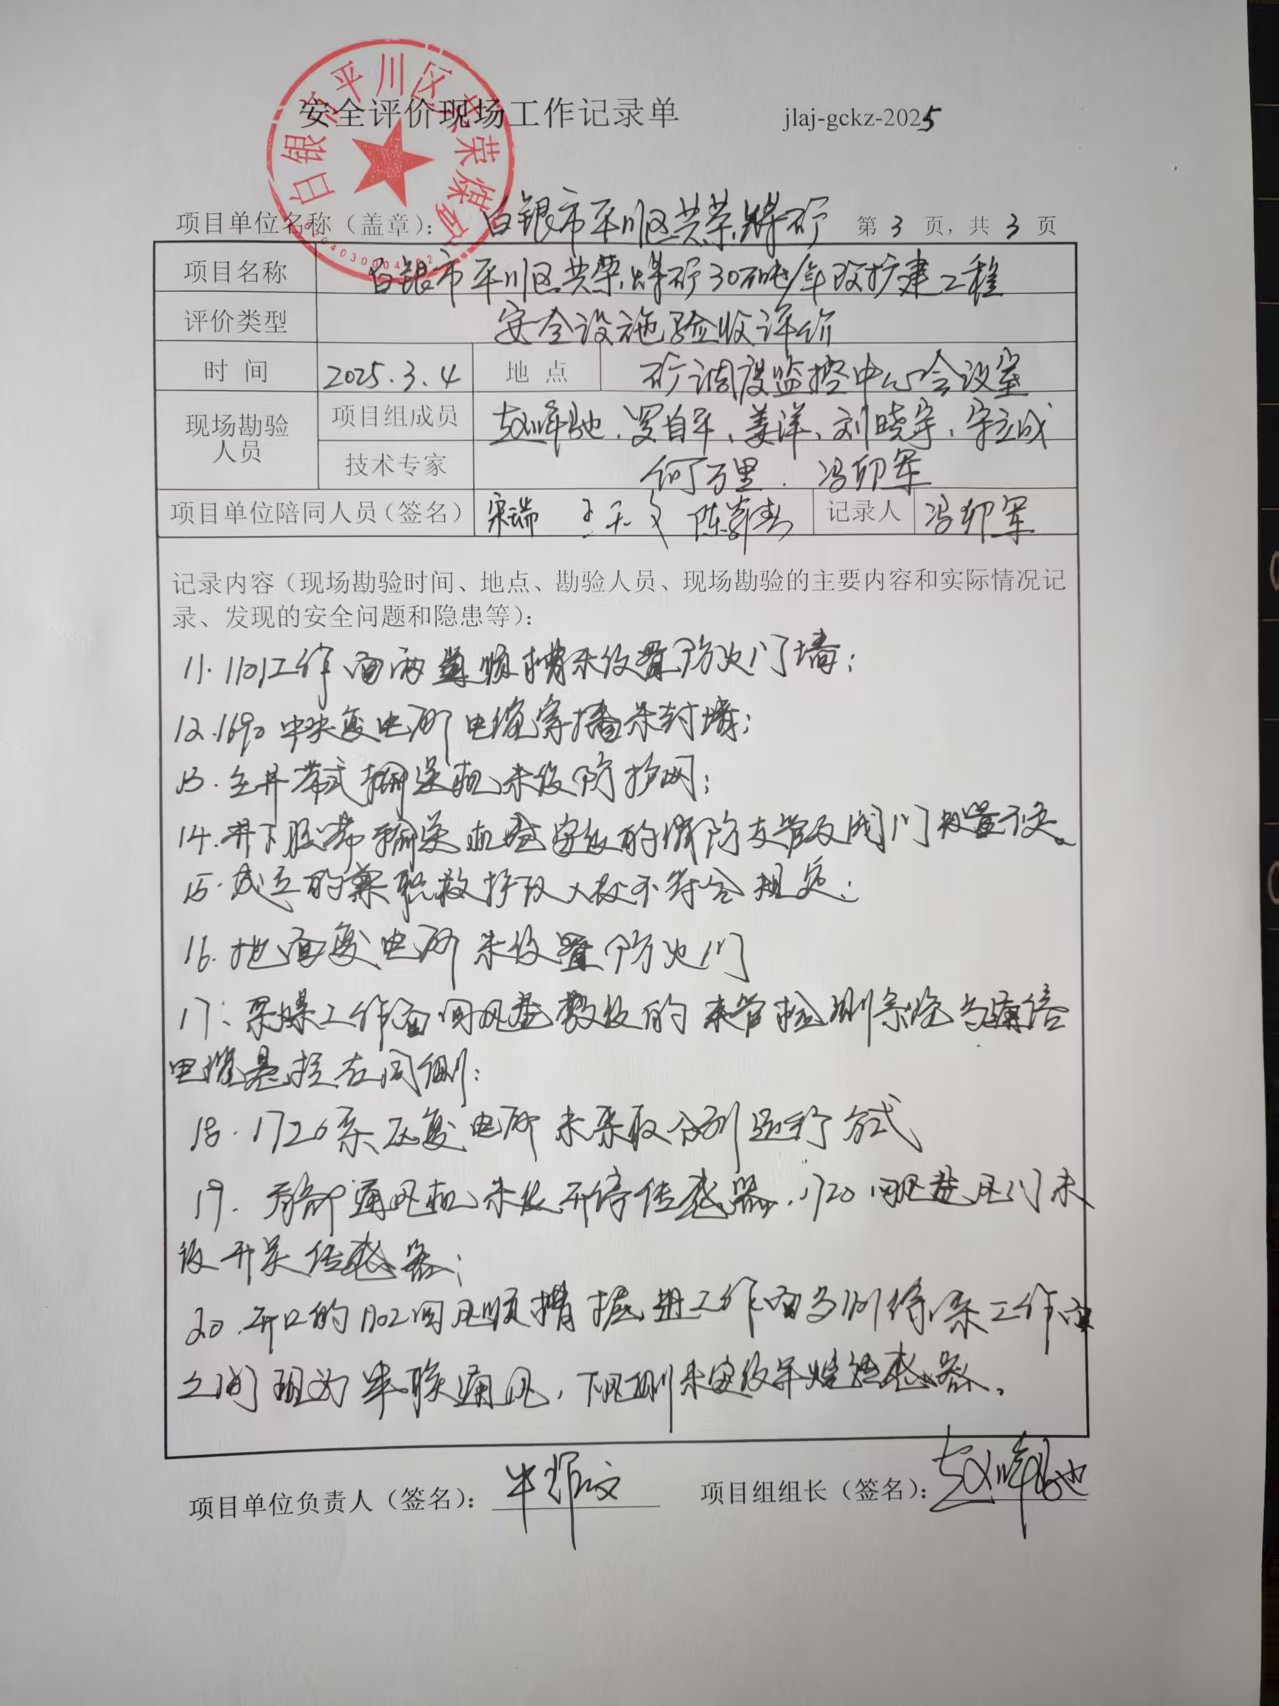 安全评价现场工作记录单 jlaj-gckz-2025
白银市平川区共荣煤矿
项目单位名称（盖章）： 白银市平川区共荣煤矿 第 3 页，共 3 页
项目名称 白银市平川区共荣煤矿30万吨/年改扩建工程
评价类型 安全设施验收评价
时 间 2025.3.4 地 点 矿调度监控中心会议室
现场勘验人员 项目组成员 赵峰弛、罗自平、姜洋、刘晓宇、宋立成
技术专家 何万里、冯卯军
项目单位陪同人员(签名) 宋瑞 王天文 陈 记录人 冯卯军
记录内容（现场勘验时间、地点、勘验人员、现场勘验的主要内容和实际情况记
录、发现的安全问题和隐患等）：
11. 1101工作面两道顺槽未设置防火门墙；
12. 1690中央变电所电缆穿墙未封堵；
13. 主井带式输送机未设防护网；
14. 井下胶带输送机巷安设的消防支管及阀门设置不足。
15. 成立的兼职救护队人数不符合规定；
16. 地面变电所未设置防火门
17. 采煤工作面回风巷敷设的束管检测系统与通信
电缆悬挂在同侧；
18. 1720采区变电所未采取分列运行方式
19. 局部通风机未设开停传感器，1720回风巷风门未
设开关传感器；
20. 开口的1102回风顺槽掘进工作面与 工作面
之间现为串联通风，下风侧未安设甲烷传感器。
项目单位负责人（签名）： 项目组组长（签名）：赵峰弛